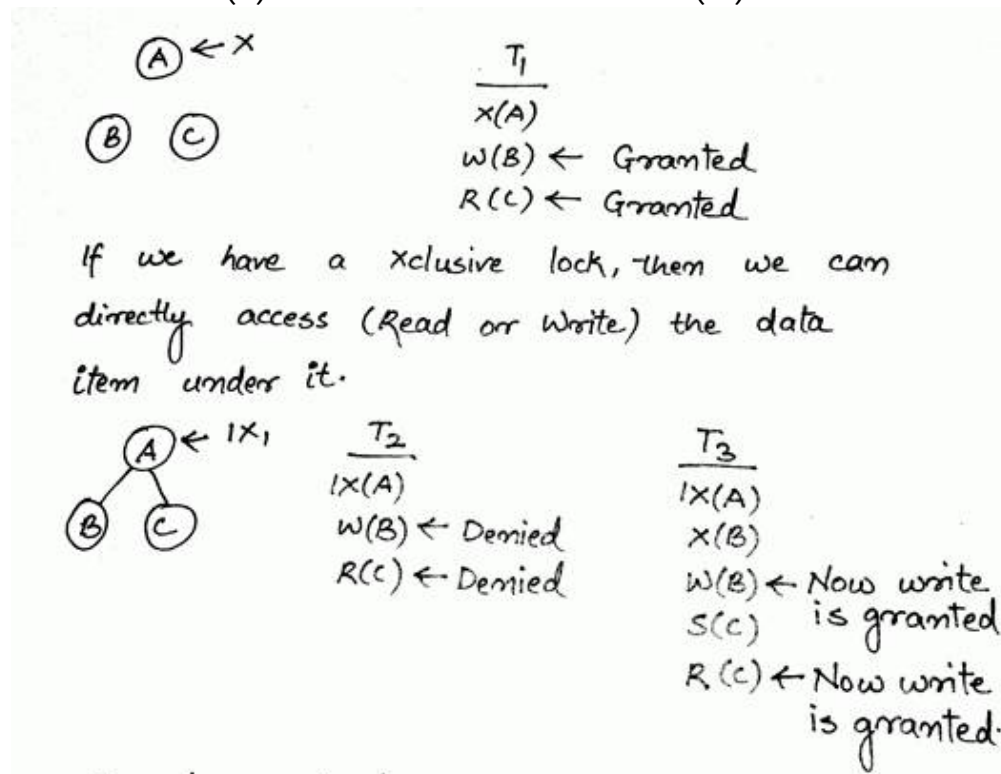 A ← X
T1
X(A)
B C
W(B) ← Granted
R(C) ← Granted
If we have a xclusive lock, then we can
directly access (Read or Write) the data
item under it.
A ← IX1
B C
T2
IX(A)
W(B) ← Denied
R(C) ← Denied
T3
IX(A)
X(B)
W(B) ← Now write
is granted
S(C)
R(C) ← Now write
is granted.